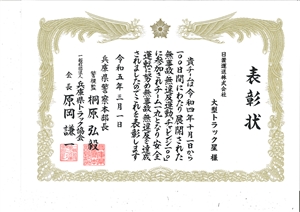 表彰状
日豊運送株式会社
大型トラック星 様
貴チームは令和四年十月一日から
一〇〇日間にわたり展開された
無事故・無違反運動「チャレンジ一〇〇」
に参加されチーム一丸となり安全
運転に努め無事故・無違反を達成
されましたのでこれを表彰します
令和五年三月一日
兵庫県警察本部長
警視監 桐原弘毅
一般社団法人 兵庫県トラック協会
会長 原岡謙一